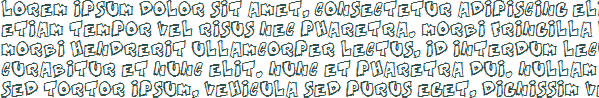 Lorem ipsum dolor sit amet, consectetur adipiscing eli
etiam tempor vel risus nec pharetra. Morbi fringilla
morbi hendrerit ullamcorper lectus, id interdum lec
curabitur et nunc elit. Nunc et pharetra dui. Nullam
sed tortor ipsum, vehicula sed purus eget, dignissim v